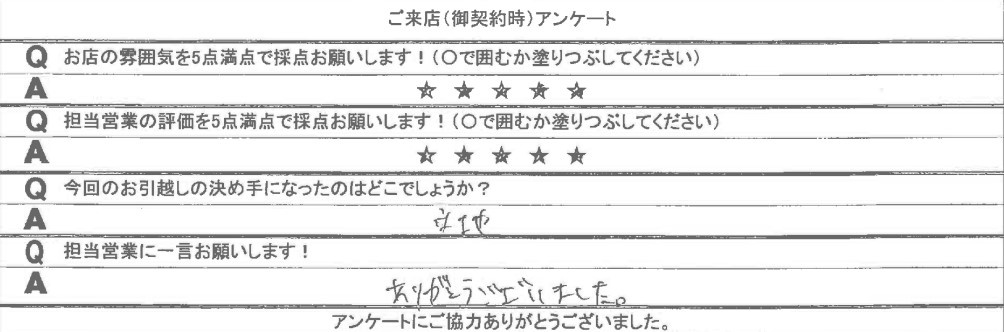 ご来店(御契約時)アンケート
Q お店の雰囲気を5点満点で採点お願いします!(〇で囲むか塗りつぶしてください)
A ☆ ☆ ☆ ☆ ☆
Q 担当営業の評価を5点満点で採点お願いします!(〇で囲むか塗りつぶしてください)
A ☆ ☆ ☆ ☆ ☆
Q 今回のお引越しの決め手になったのはどこでしょうか?
A
Q 担当営業に一言お願いします!
A ありがとうございました。
アンケートにご協力ありがとうございました。